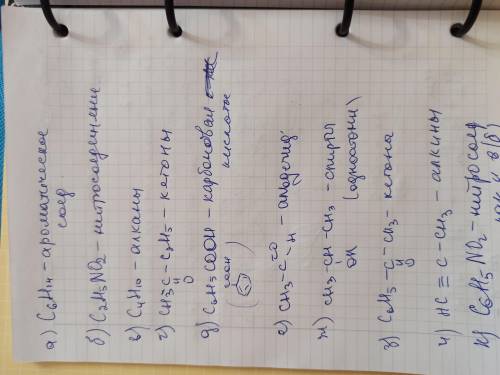 а) C6H14 – ароматическое
соед.
б) C2H5NO2 – нитросоединени
в) C4H10 – алканы
г) CH3 – C – C2H5 – кетоны
O
д) C6H5COOH – карбоновая
кислота
(COOH)
е) CH3 – C =O – альдегид
H
ж) CH3 – CH – CH3 – спирты
OH (одноатомн)
з) C6H5 – C – CH3 – кетона
O
и) HC ≡ C – CH3 – алкины
к) C6H5NO2 – нитросоед